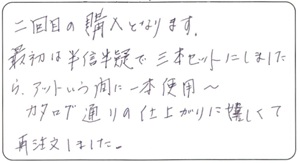 二回目の購入となります。
最初は半信半疑で三本セットにしました
ら、アットいう間に一本使用〜
カタログ通りの仕上がりに嬉しくて
再注文しました。